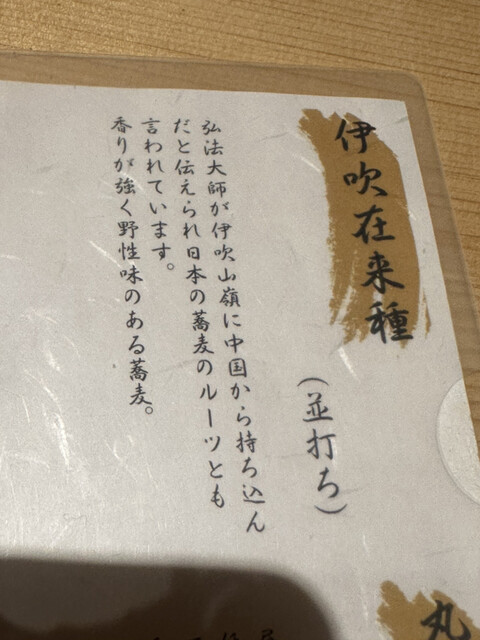 伊吹在来種
(並打ち)
弘法大師が伊吹山嶺に中国から持ち込ん
だと伝えられ日本の蕎麦のルーツとも
言われています。
香りが強く野性味のある蕎麦。
丸